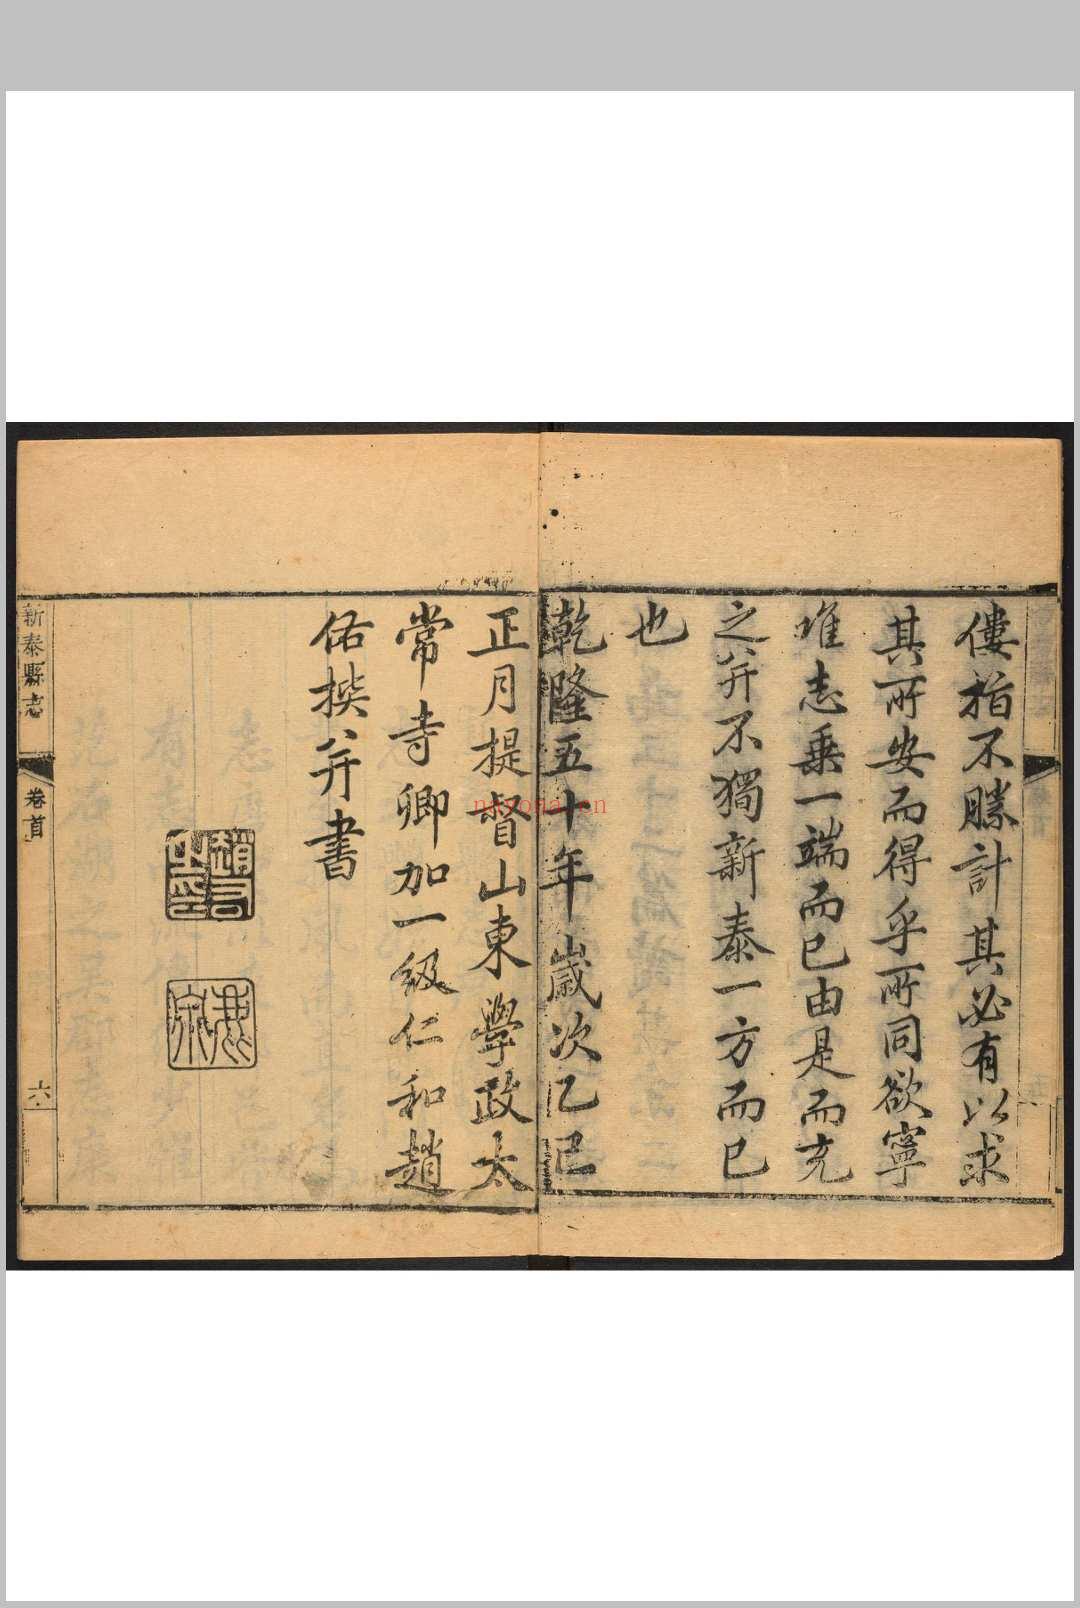 僂指不勝計其必有以求
其所安而得乎所同欲寧
唯志乗一端而已由是而充
之并不獨新泰一方而已
也
乾隆五十年歲次乙巳
正月提督山東學政太
常寺卿加一級仁和趙
佑撰并書
趙佑之印
鹿泉
新泰縣志
卷首
六
nayona.cn